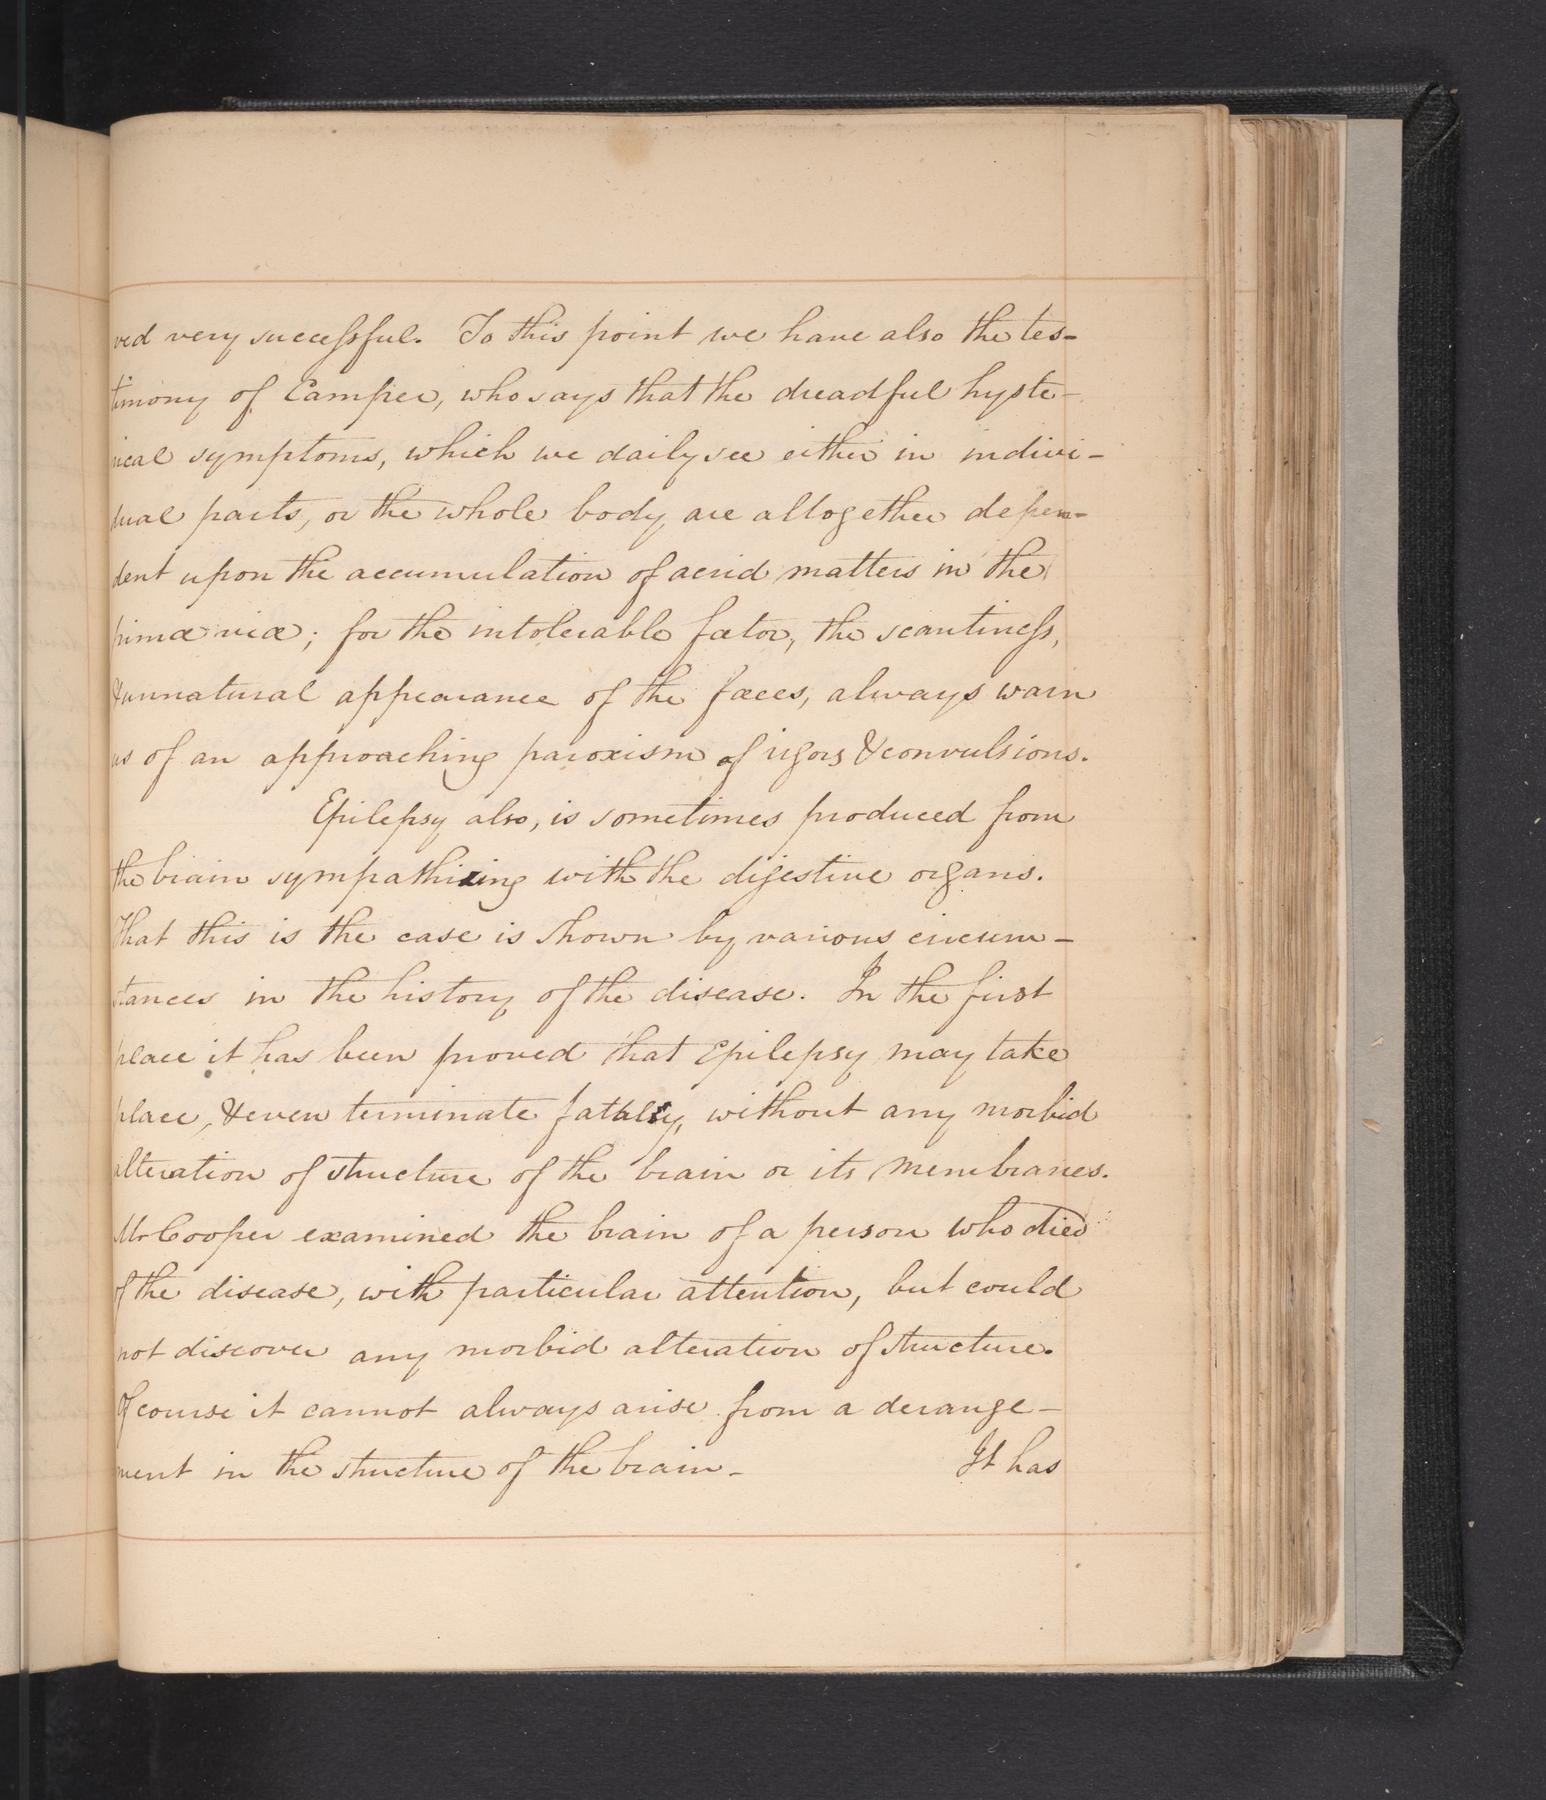 ved very successful. To this point we have also the tes-
timony of Camper, who says that the dreadful hyste-
rical symptoms, which we daily see either in indivi-
dual parts, or the whole body, are altogether depen-
dent upon the accumulation of acrid matters in the
primæ viæ; for the intolerable fœtor, the scantiness,
& unnatural appearance of the fæces, always warn
us of an approaching paroxism of rigors & convulsions.
Epilepsy also, is sometimes produced from
the brain sympathizing with the digestive organs.
That this is the case is shown by various circum-
stances in the history of the disease. In the first
place it has been proved that Epilepsy may take
place, & even terminate fatally, without any morbid
alteration of structure of the brain or its membranes.
Mr Cooper examined the brain of a person who died
of the disease, with particular attention, but could
not discover any morbid alteration of structure.
Of course it cannot always arise from a derange-
ment in the structure of the brain- It has